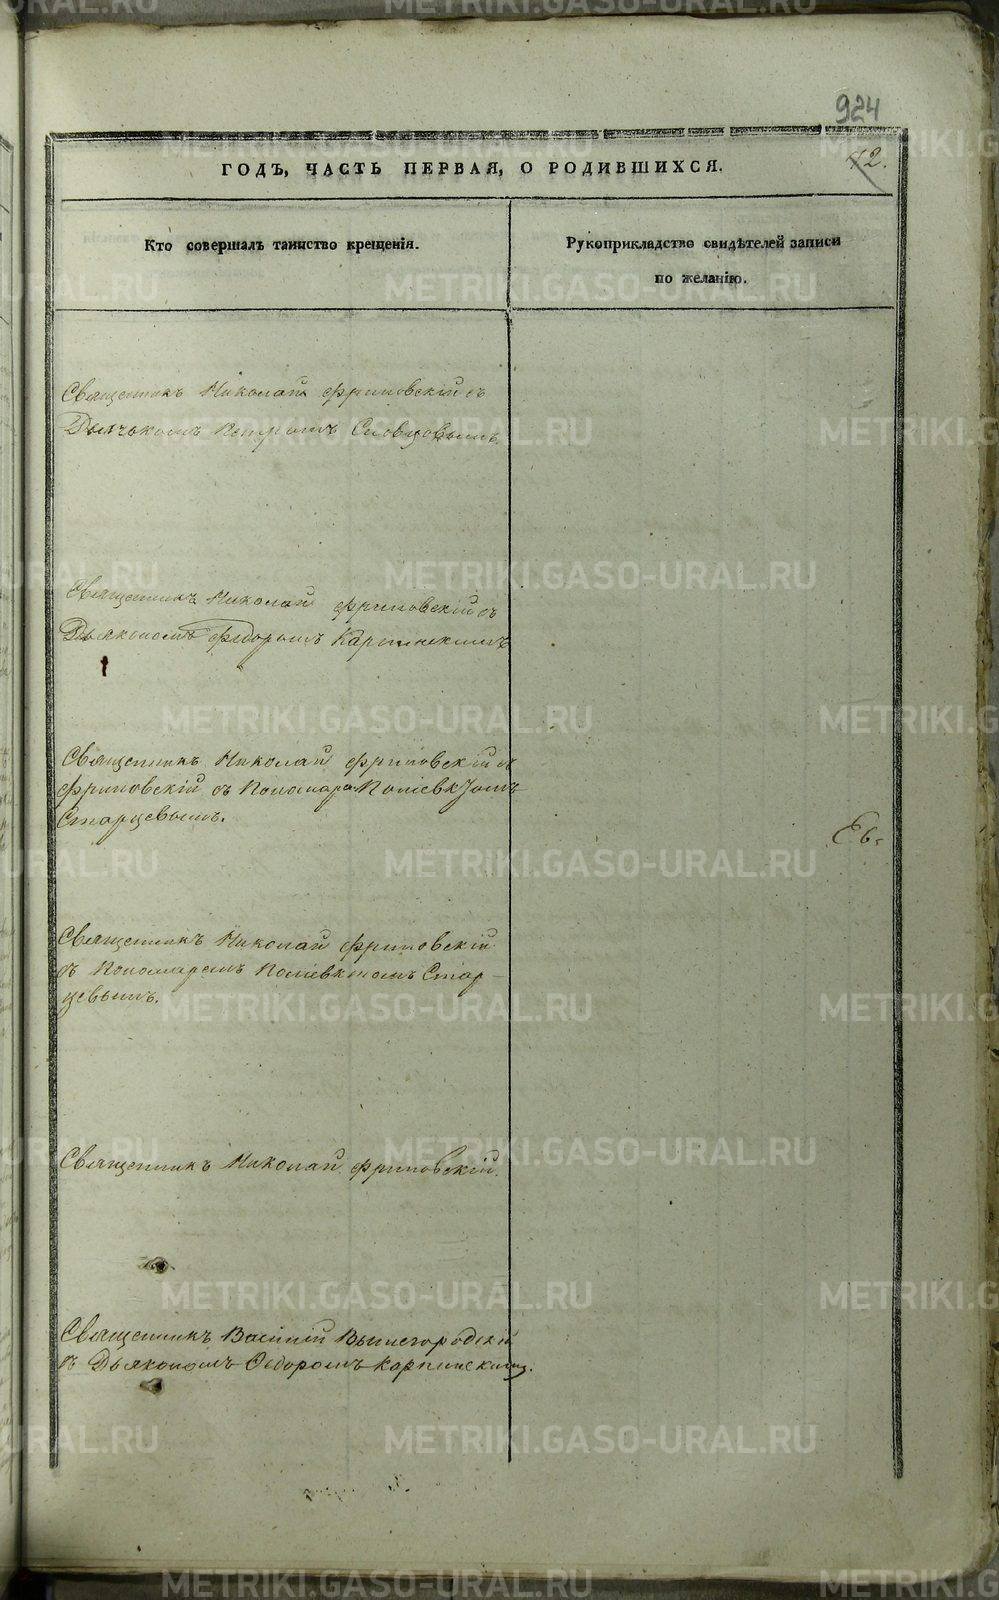 924
12.
ГОДЪ, ЧАСТЬ ПЕРВАЯ, О РОДИВШИХСЯ.
Кто совершалъ таинство крещенія.
Рукоприкладство свидѣтелей записи
по желанію.
Священникъ Николай Фриновскій съ
Дьячкомъ Петромъ Словцовымъ.
Священникъ Николай Фриновскій съ
Дьякономъ Федоромъ Карпинскимъ
Священникъ Николай Фриновскій съ
Фриновскій съ Пономаре
Старцевымъ.
Ев:
Священникъ Николай Фриновскій
съ Пономаремъ Стар-
цевымъ.
Священникъ Николай Фриновскій.
Священникъ Василій Вышегородскій
съ Дьякономъ Ѳедоромъ Карпинскимъ.
METRIKI.GASO-URAL.RU